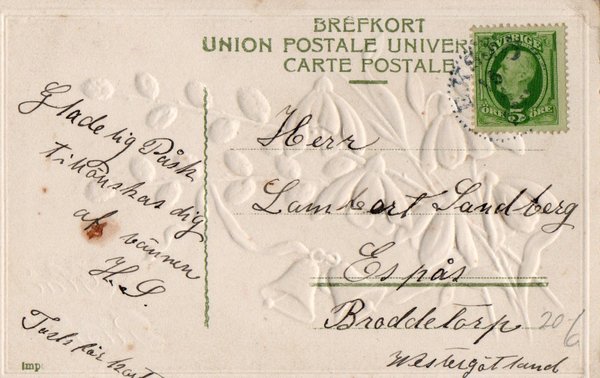 BREFKORT
UNION POSTALE UNIVER
CARTE POSTALE
SVERIGE
5
ÖRE ÖRE
Gladelig Påsk
tillönskas dig
af vännen
H.S.
Tack för kort
Herr
Lambert Sandberg
Espås
Broddetorp
Westergötland
20-6
Imp: